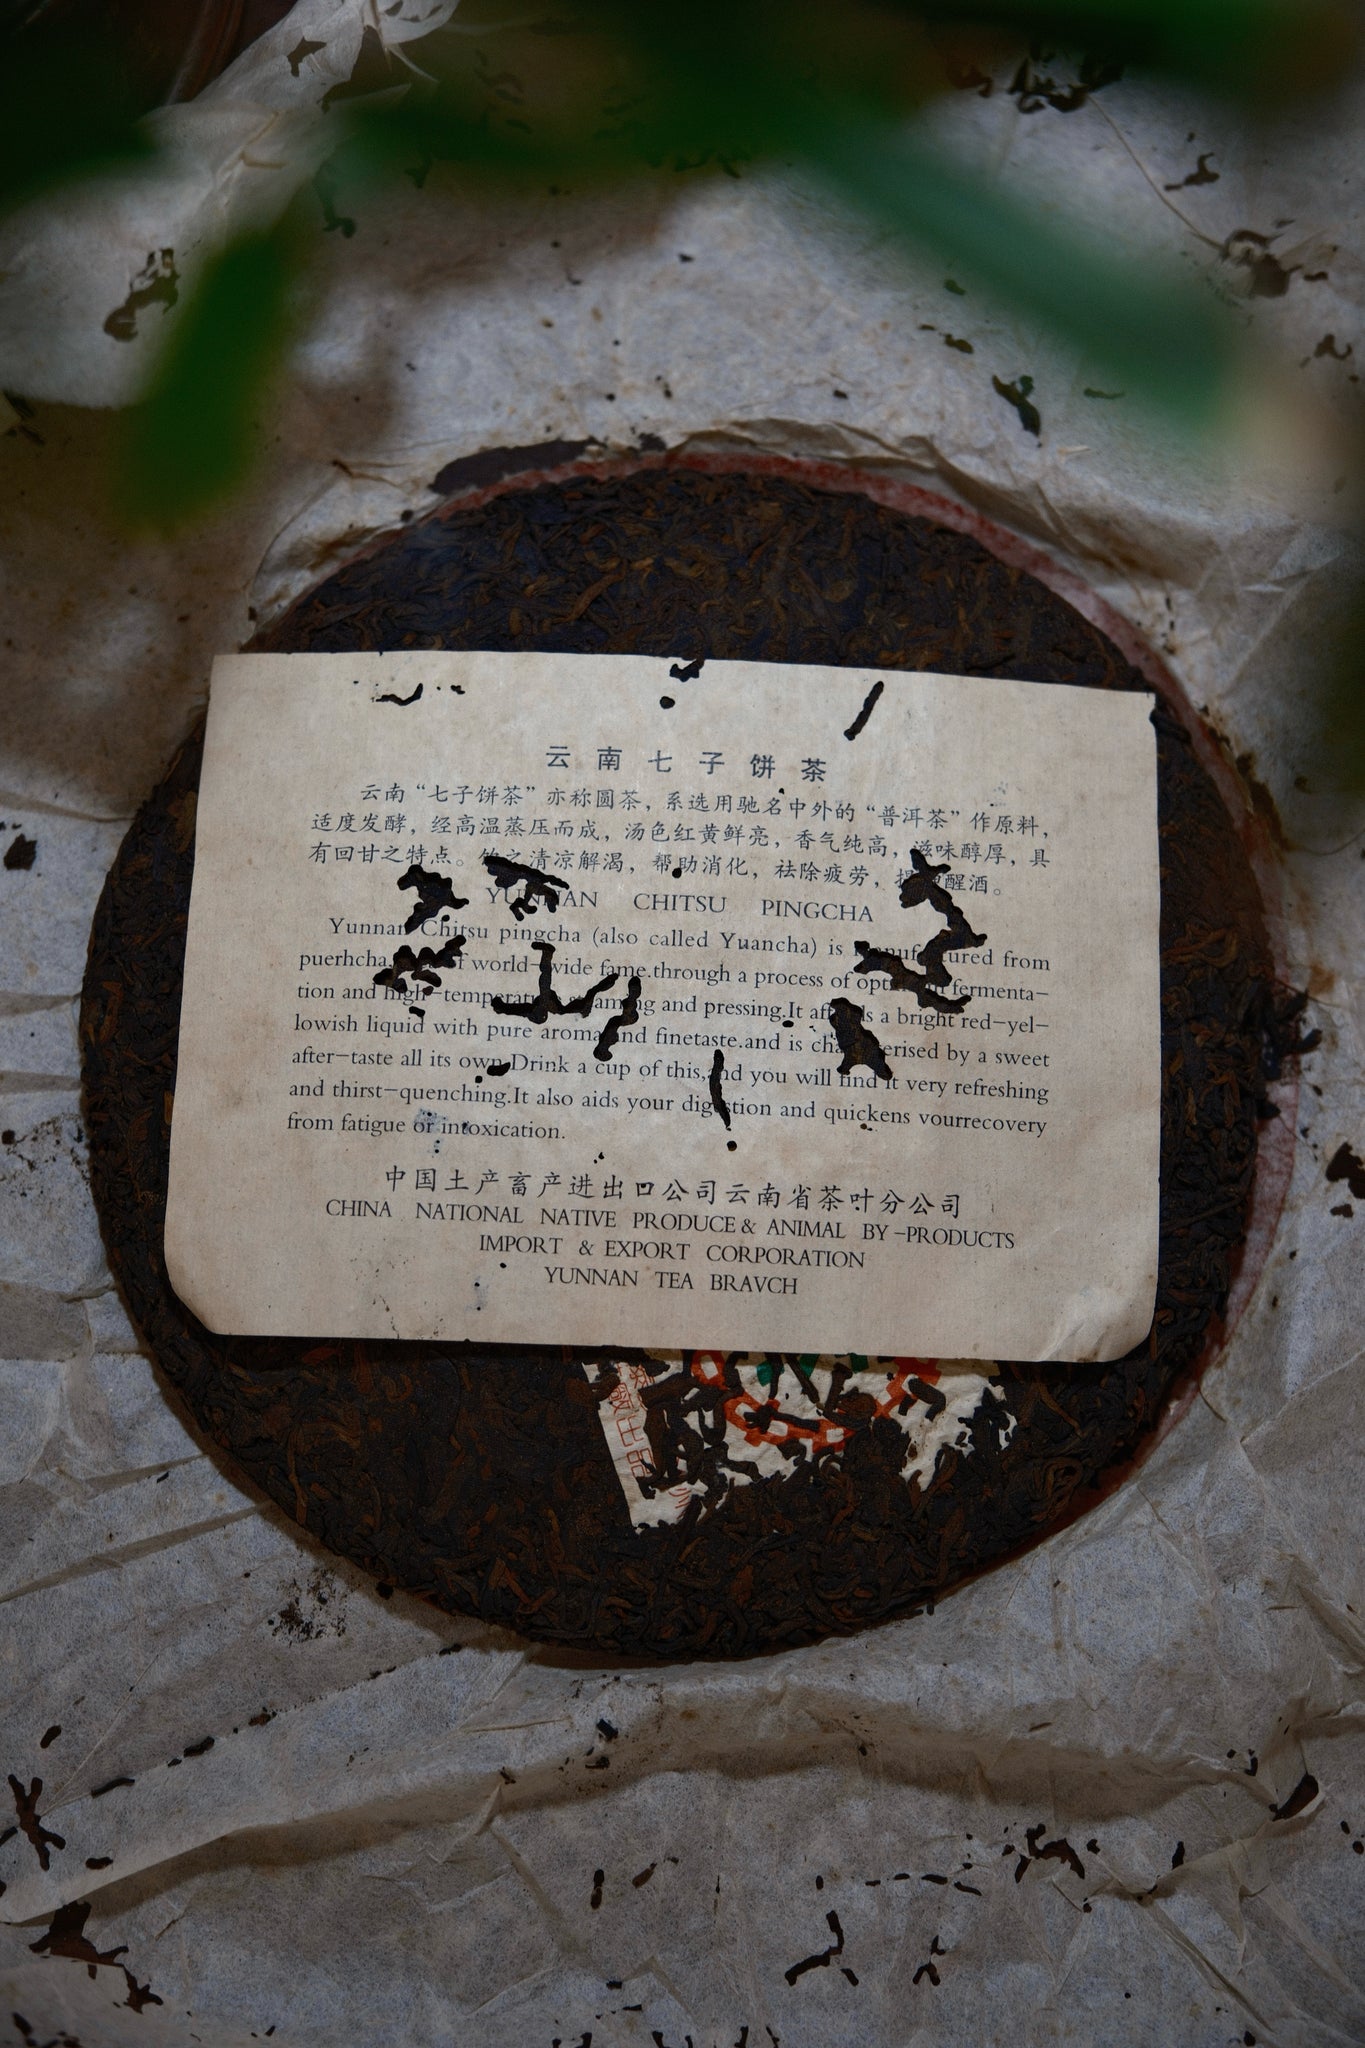 云南七子饼茶
云南“七子饼茶”亦称圆茶，系选用驰名中外的“普洱茶”作原料，
适度发酵，经高温蒸压而成，汤色红黄鲜亮，香气纯高，滋味醇厚，具
有回甘之特点。饮之清凉解渴，帮助消化，祛除疲劳，提醒酒。
YUNNAN CHITSU PINGCHA
Yunnan Chitsu pingcha (also called Yuancha) is manufactured from
puerhcha, of world-wide fame.through a process of fermenta-
tion and high-temperature steaming and pressing.It affords a bright red-yel-
lowish liquid with pure aroma and finetaste.and is characterised by a sweet
after-taste all its own.Drink a cup of this,and you will find it very refreshing
and thirst-quenching.It also aids your digestion and quickens vourrecovery
from fatigue or intoxication.
中国土产畜产进出口公司云南省茶叶分公司
CHINA NATIONAL NATIVE PRODUCE & ANIMAL BY-PRODUCTS
IMPORT & EXPORT CORPORATION
YUNNAN TEA BRAVCH
出品